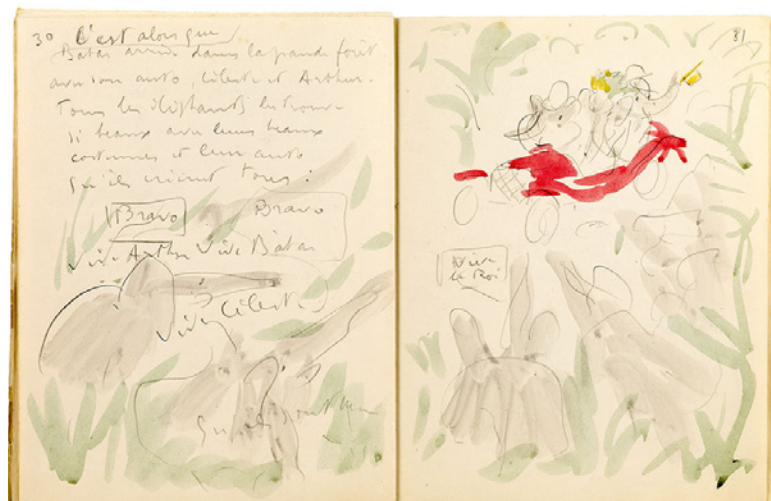 30 C'est alors que
Babar arrive dans la grande forêt
avec son auto, Céleste et Arthur.
Tous les éléphants les trouvent
si beaux avec leurs beaux
costumes et leur auto
qu'ils crient tous :
Bravo Bravo
Vive Arthur Vive Babar
Vive Céleste
31
Vive
le Roi